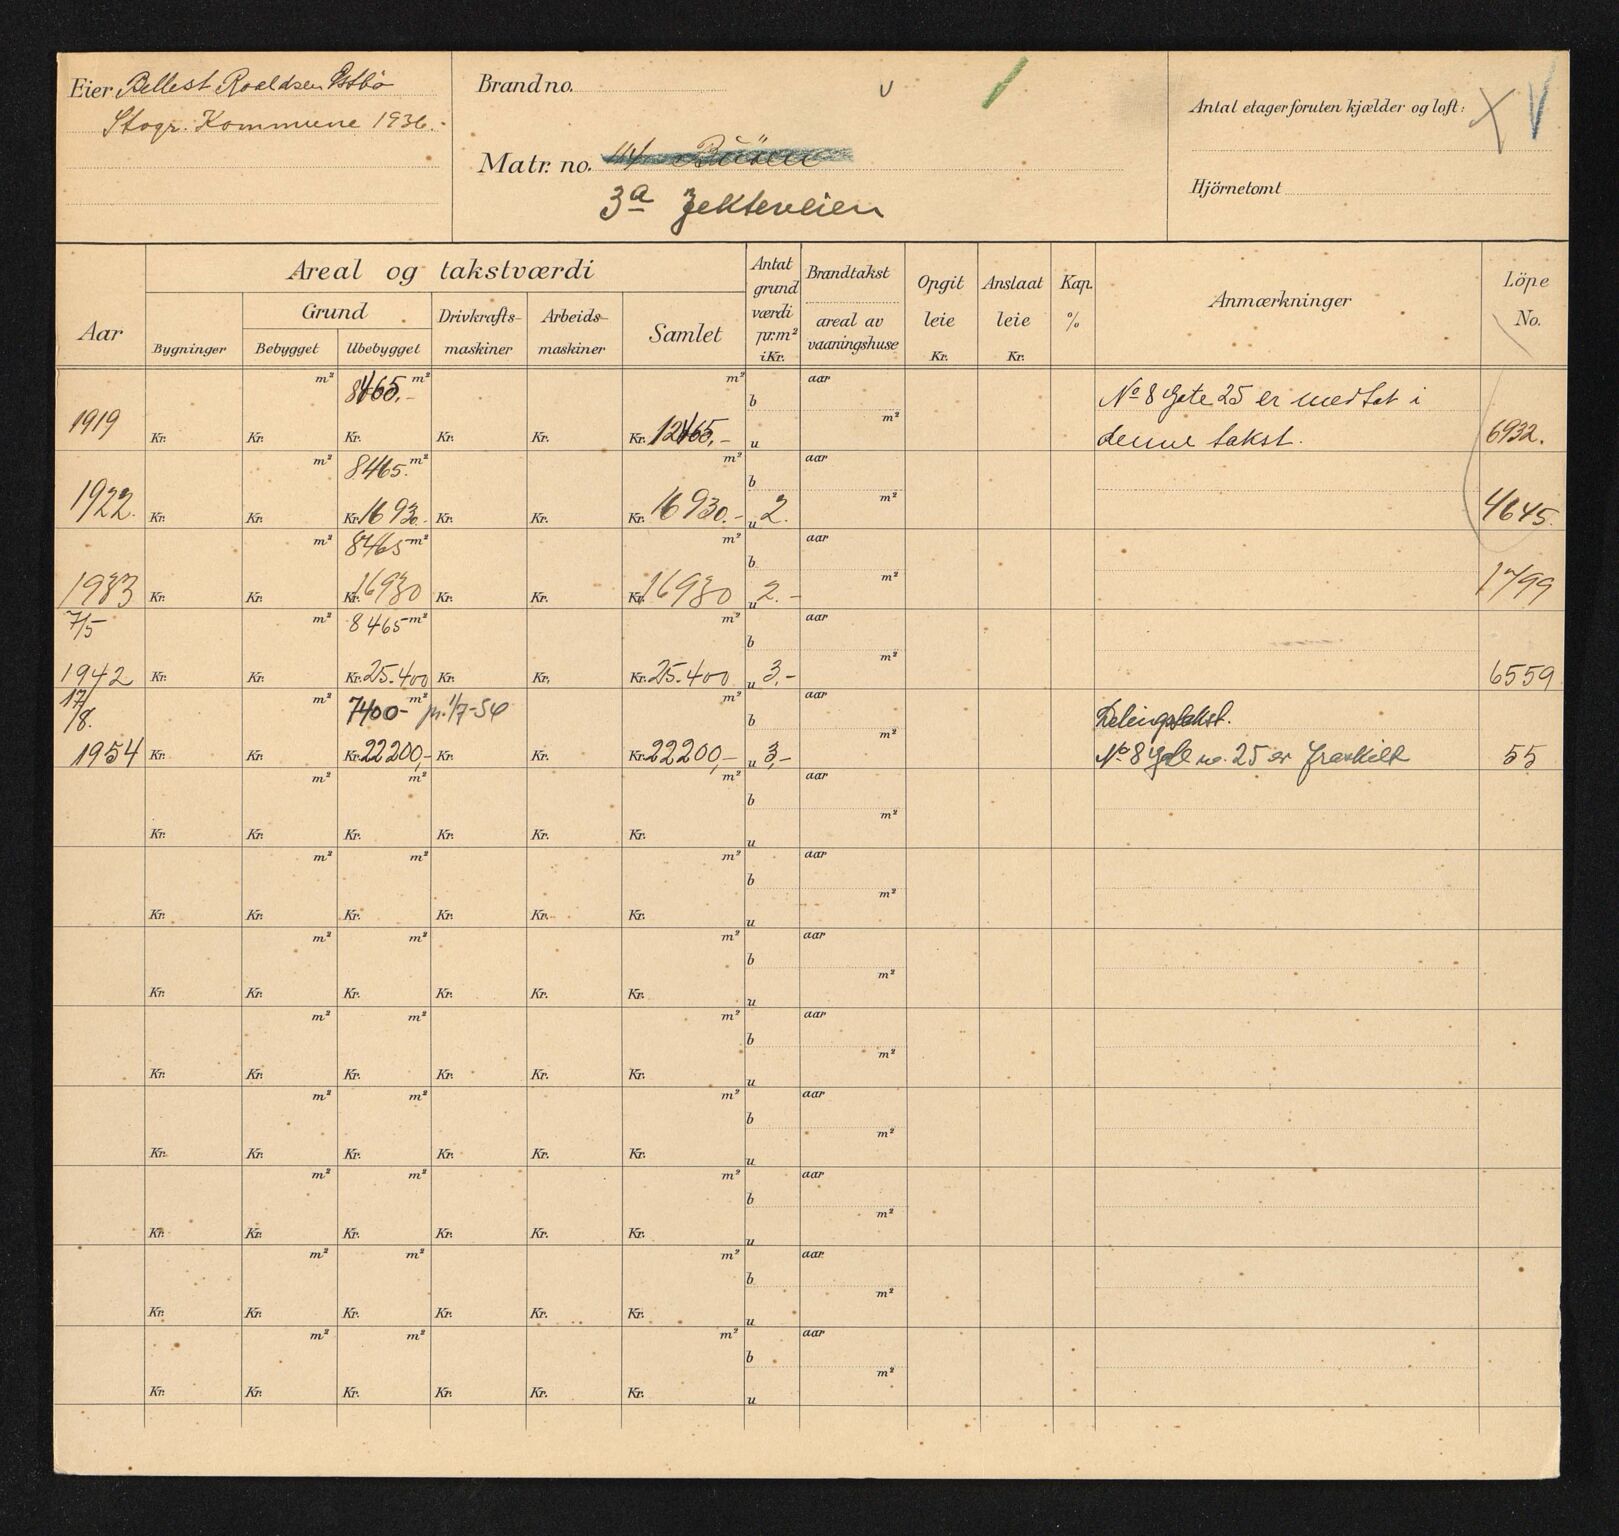 Eier Pellest Roaldsen Østbø
Stvgr. Kommune 1936.
Brandno.
Matr. no. Buöen
3a Jekteveien
Antal etager foruten kjælder og loft: X V
Hjörnetomt
Aar
Areal og takstværdi
Grund
Bygninger Bebygget Ubebygget Drivkrafts-maskiner Arbeids-maskiner Samlet
Antat grund værdi pr. m² i Kr.
Brandtakst
areal av vaaningshuse
Opgit leie Kr.
Anslaat leie Kr.
Kap. %
Anmærkninger
Löpe No.
m² 8465,- m² m² aar
b m²
1919 Kr. Kr. Kr. Kr. Kr. Kr. 12465,- u
No 8 Gate 25 er medtat i
denne takst.
6932.
m² 8465. m² m² aar
b m²
1922. Kr. Kr. Kr. 16930.- Kr. Kr. Kr. 16930.- u 2. 4645.
m² 8465 m² m² aar
b m²
1933 Kr. Kr. Kr. 16930 Kr. Kr. Kr. 16930 u 2.- 1799
7/5 m² 8465 m² m² aar
b m²
1942 Kr. Kr. Kr. 25.400 Kr. Kr. Kr. 25.400 u 3,- 6559
17/8. m² 7400- m² pr. 1/7-54 m² aar
b m²
1954 Kr. Kr. Kr. 22200,- Kr. Kr. Kr. 22200,- u 3,-
Delingstakst.
No 8 Gate no. 25 er fraskilt
55
m² m² m² aar
b m²
Kr. Kr. Kr. Kr. Kr. Kr. u
m² m² m² aar
b m²
Kr. Kr. Kr. Kr. Kr. Kr. u
m² m² m² aar
b m²
Kr. Kr. Kr. Kr. Kr. Kr. u
m² m² m² aar
b m²
Kr. Kr. Kr. Kr. Kr. Kr. u
m² m² m² aar
b m²
Kr. Kr. Kr. Kr. Kr. Kr. u
m² m² m² aar
b m²
Kr. Kr. Kr. Kr. Kr. Kr. u
m² m² m² aar
b m²
Kr. Kr. Kr. Kr. Kr. Kr. u
m² m² m² aar
b m²
Kr. Kr. Kr. Kr. Kr. Kr. u